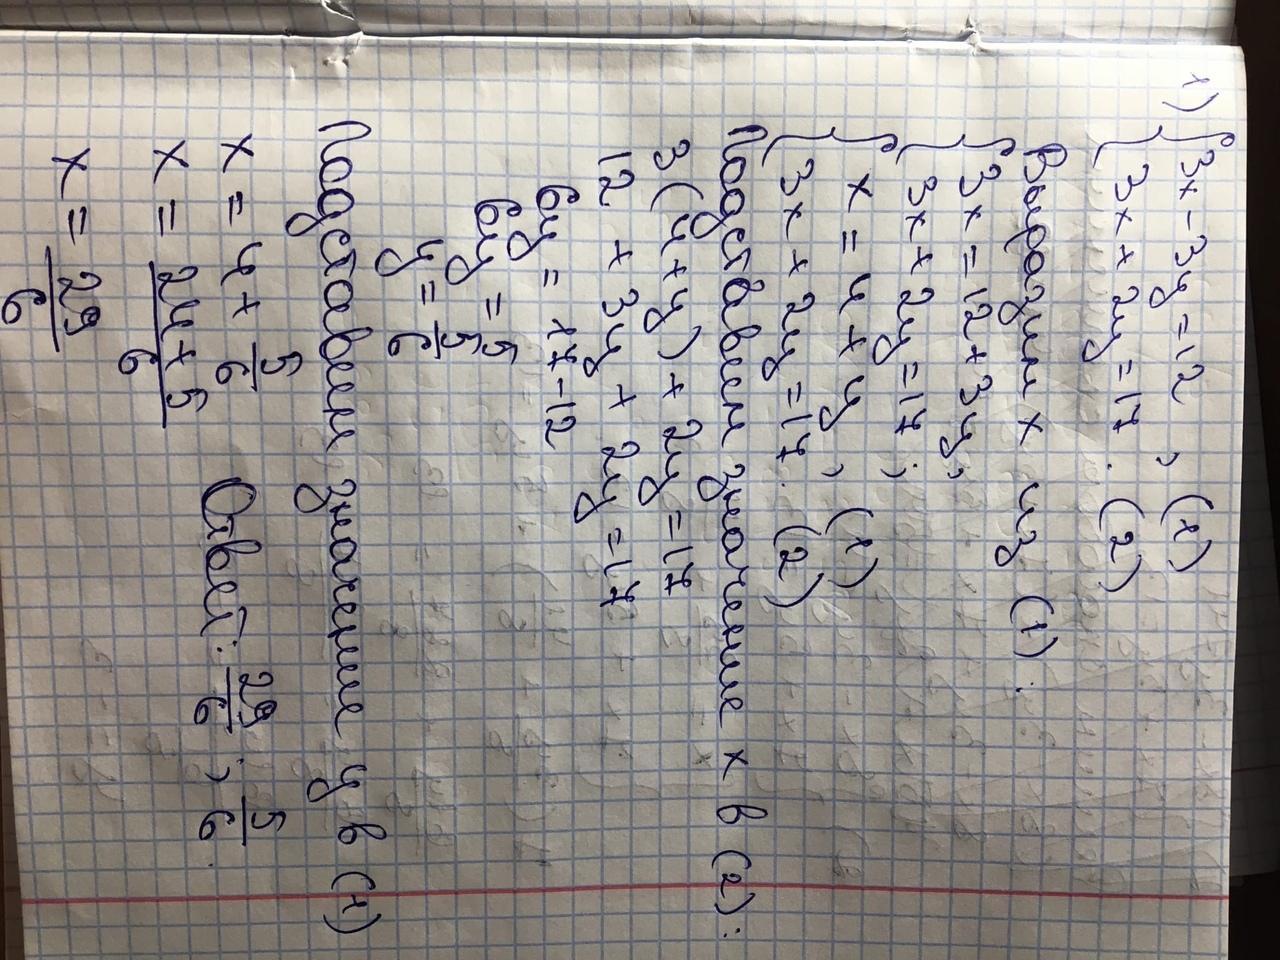 1) { 3x - 3y = 12, (1)
{ 3x + 2y = 17. (2)
Выразим x из (1):
{ 3x = 12 + 3y,
{ 3x + 2y = 17;
{ x = 4 + y, (1)
{ 3x + 2y = 17. (2)
Подставим значение x в (2):
3(4+y) + 2y = 17
12 + 3y + 2y = 17
6y = 17-12
6y = 5
y = 5/6
Подставим значение y в (1)
x = 4 + 5/6
x = 24+5/6
x = 29/6
Ответ: 29/6; 5/6.